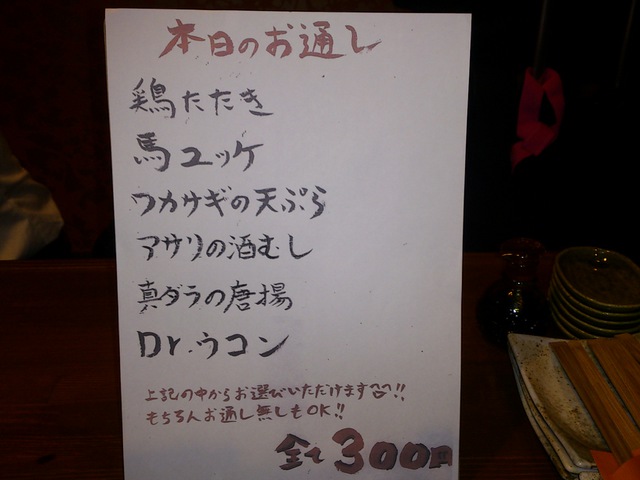 本日のお通し
鶏たたき
馬ユッケ
ワカサギの天ぷら
アサリの酒むし
真ダラの唐揚
Dr.ウコン
上記の中からお選びいただけます!!
もちろんお通し無しもOK!!
全て300円